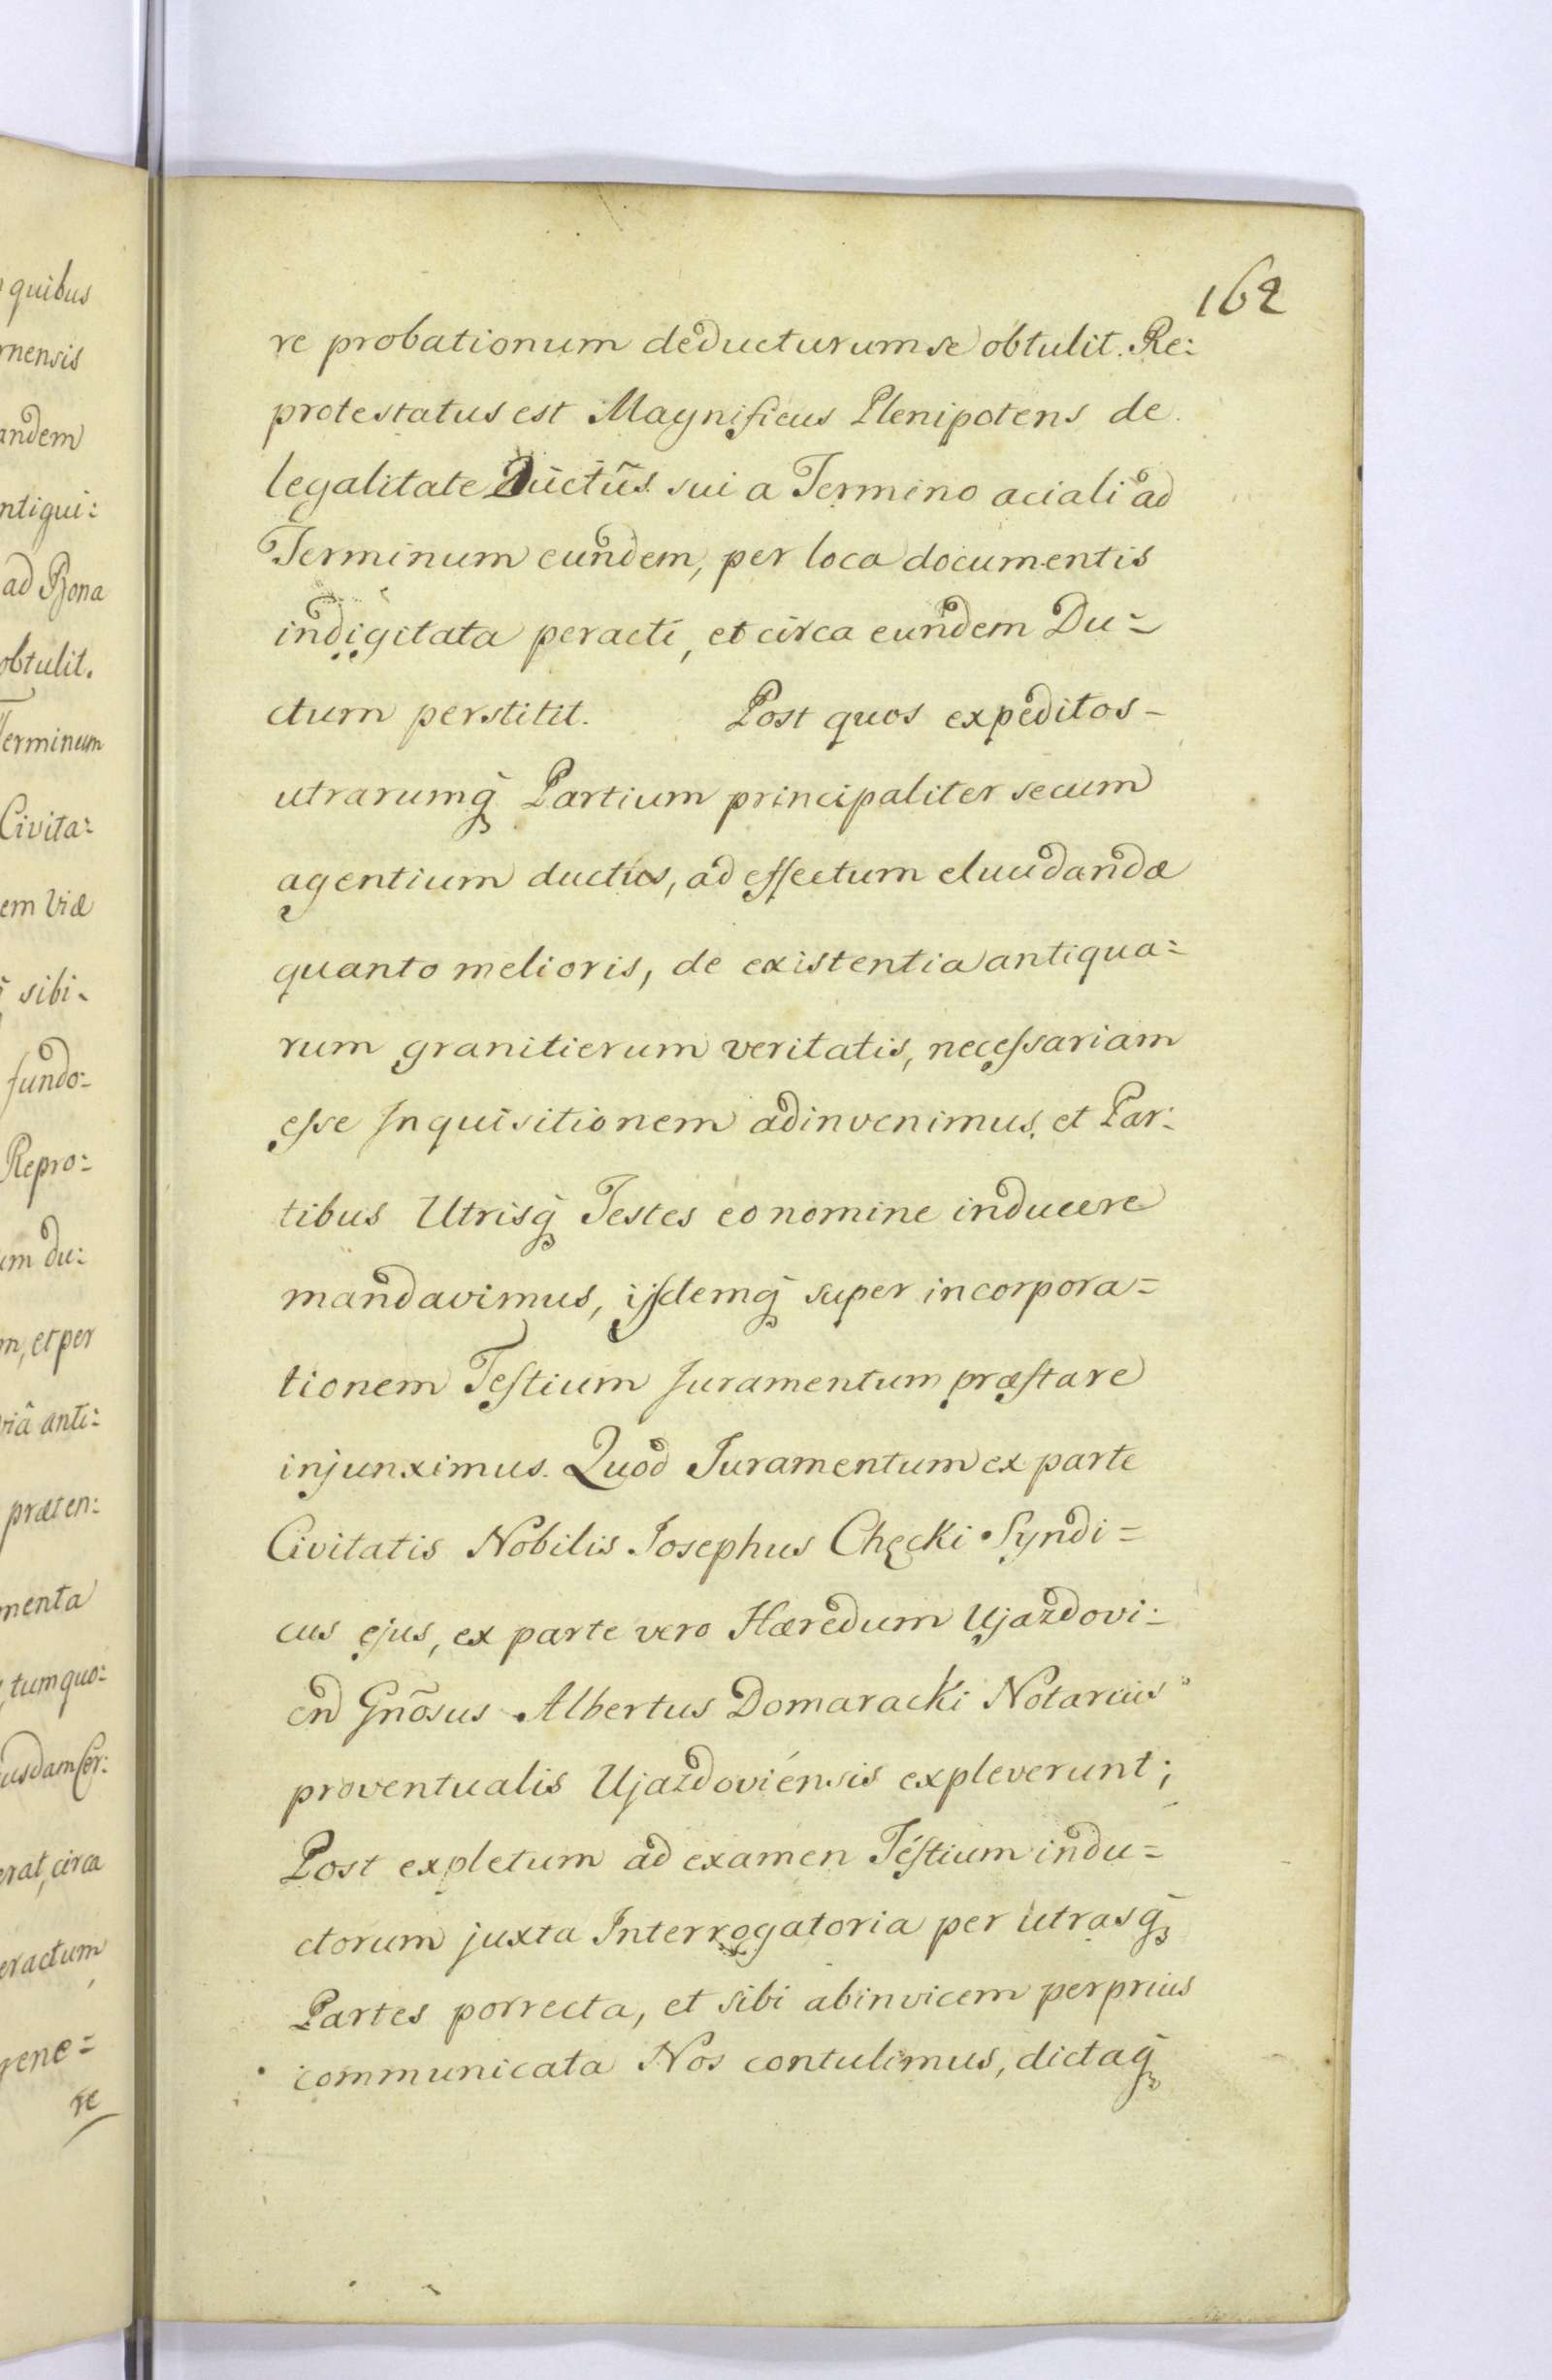 162
re probationum deducturum se obtulit. Re:
protestatus est Magnificus Plenipotens de
legalitate Ductûs sui a Termino aciali ad
Terminum eundem, per loca documentis
indigitata peracti, et circa eundem Du=
ctum perstitit. Post quos expeditos-
utrarumq̃ Partium principaliter secum
agentium ductus, ad effectum elucidandæ
quanto melioris, de existentia antiqua=
rum granitierum veritatis, neceſsariam
eſse Inquisitionem adinvenimus, et Par:
tibus Utrisq̃ Testes eo nomine inducere
mandavimus, ijſdemq̃ super incorpora=
tionem Teſtium Juramentum præſtare
injunximus. Quod Juramentum ex parte
Civitatis Nobilis Josephus Chęcki Syndi=
cus ejus, ex parte vero Hæredum Ujazdovi:
en Gnõsus Albertus Domaracki Notarius
proventualis Ujazdoviensis expleverunt;
Post expletum ad examen Teſtium indu=
ctorum juxta Interrogatoria per utrasq̃
Partes porrecta, et sibi abinvicem perprius
communicata Nos contulimus, dictaq̃
quibus
mensis
andem
ntiqui:
ad Bona
obtulit.
Terminum
Civita:
em Viæ
sibi.
fundo:
Repro:
um du:
m, et per
viâ anti:
præten:
menta
tum quo:
usdam Cer:
erat, circa
eractum
gene=
re